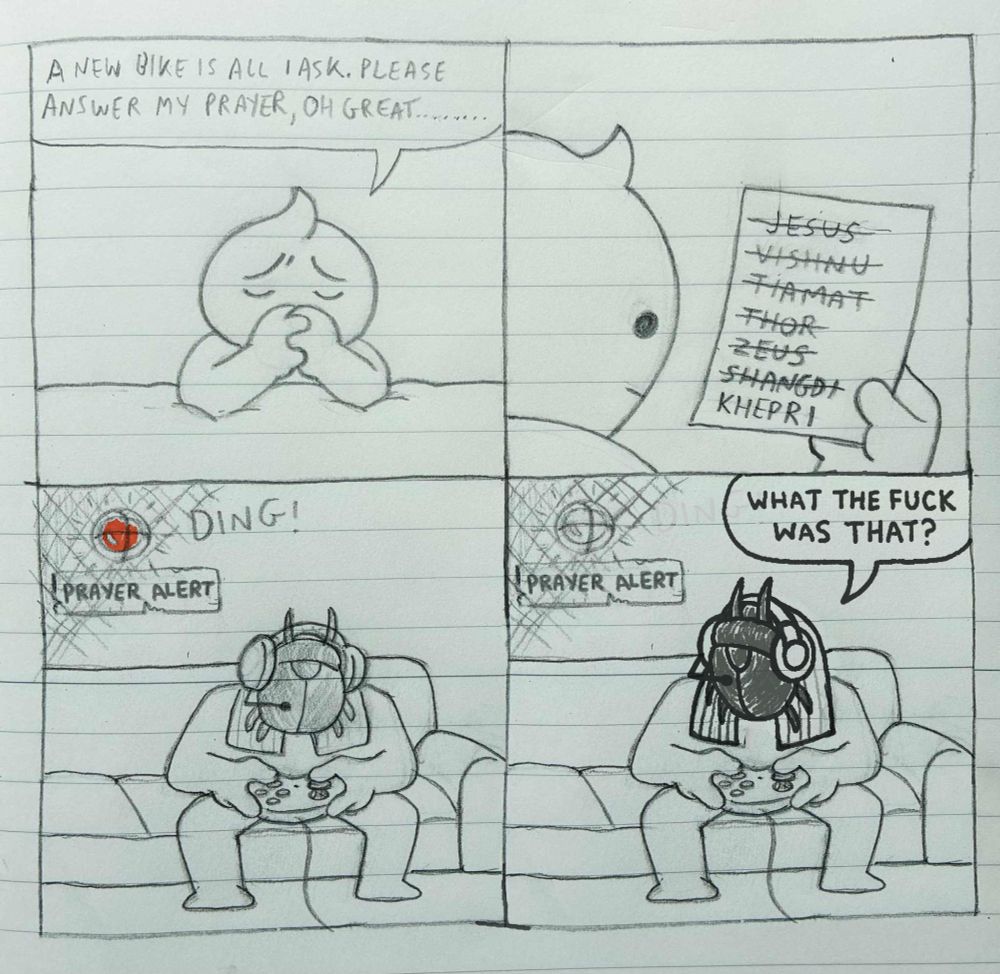 A NEW BIKE IS ALL I ASK. PLEASE
ANSWER MY PRAYER, OH GREAT.........
JESUS
VISHNU
TIAMAT
THOR
ZEUS
SHANGDI
KHEPRI
DING!
! PRAYER ALERT
! PRAYER ALERT
WHAT THE FUCK
WAS THAT?